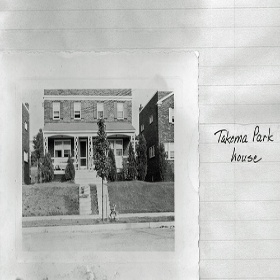 Takoma Park
house